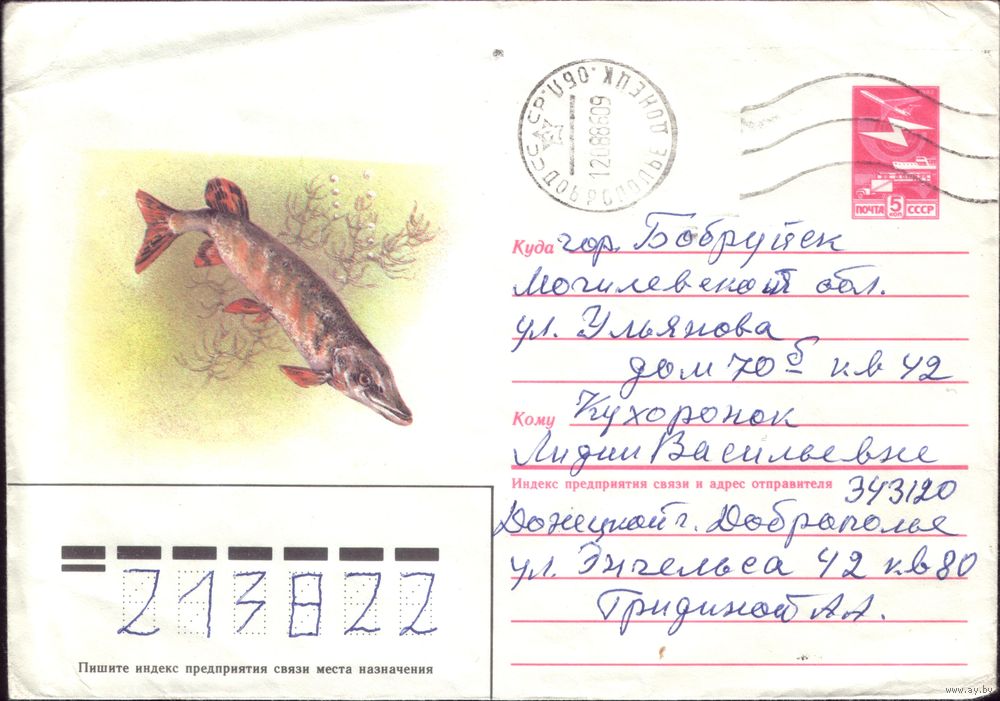 ПОЧТА 5 КОП СССР
12088609
ДОНЕЦК. ОБЛ.
Куда гор. Бобруйск
Могилевской обл.
ул. Ульянова
дом 70 б кв 42
Кому Кухоронок
Лидии Васильевне
Индекс предприятия связи и адрес отправителя 343120
Донецкой г. Доброполье
ул. Энгельса 42 кв 80
Гридиной А А.
213822
Пишите индекс предприятия связи места назначения
www.ay.by